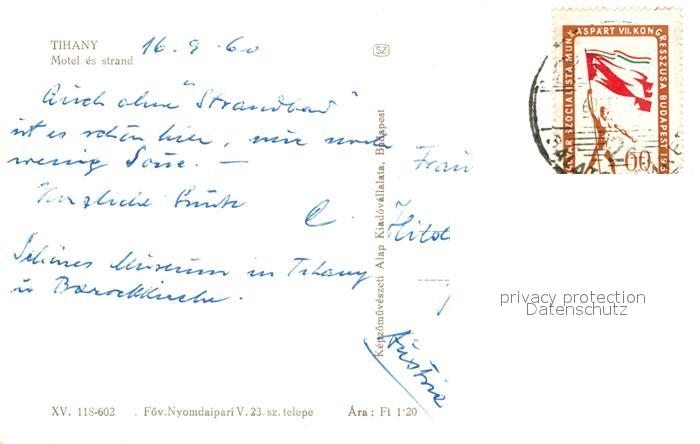 TIHANY
Motel és strand
16.9.60
SZ
Auch ohne "Strandbad"
ist es schön hier, nur noch
wenig Sonne. —
Herzliche Grüße
C.
Schönes Museum in Tihany
u Barockkirche.
Képzőművészeti Alap Kiadóvállalata, Budapest
Frau
Austria
privacy protection
Datenschutz
XV. 118-602 . Főv. Nyomdaipari V. 23. sz. telepe Ára : Ft 1·20
SZOCIALISTA MUNKÁSPÁRT VII. KONGRESSZUSA BUDAPEST
60